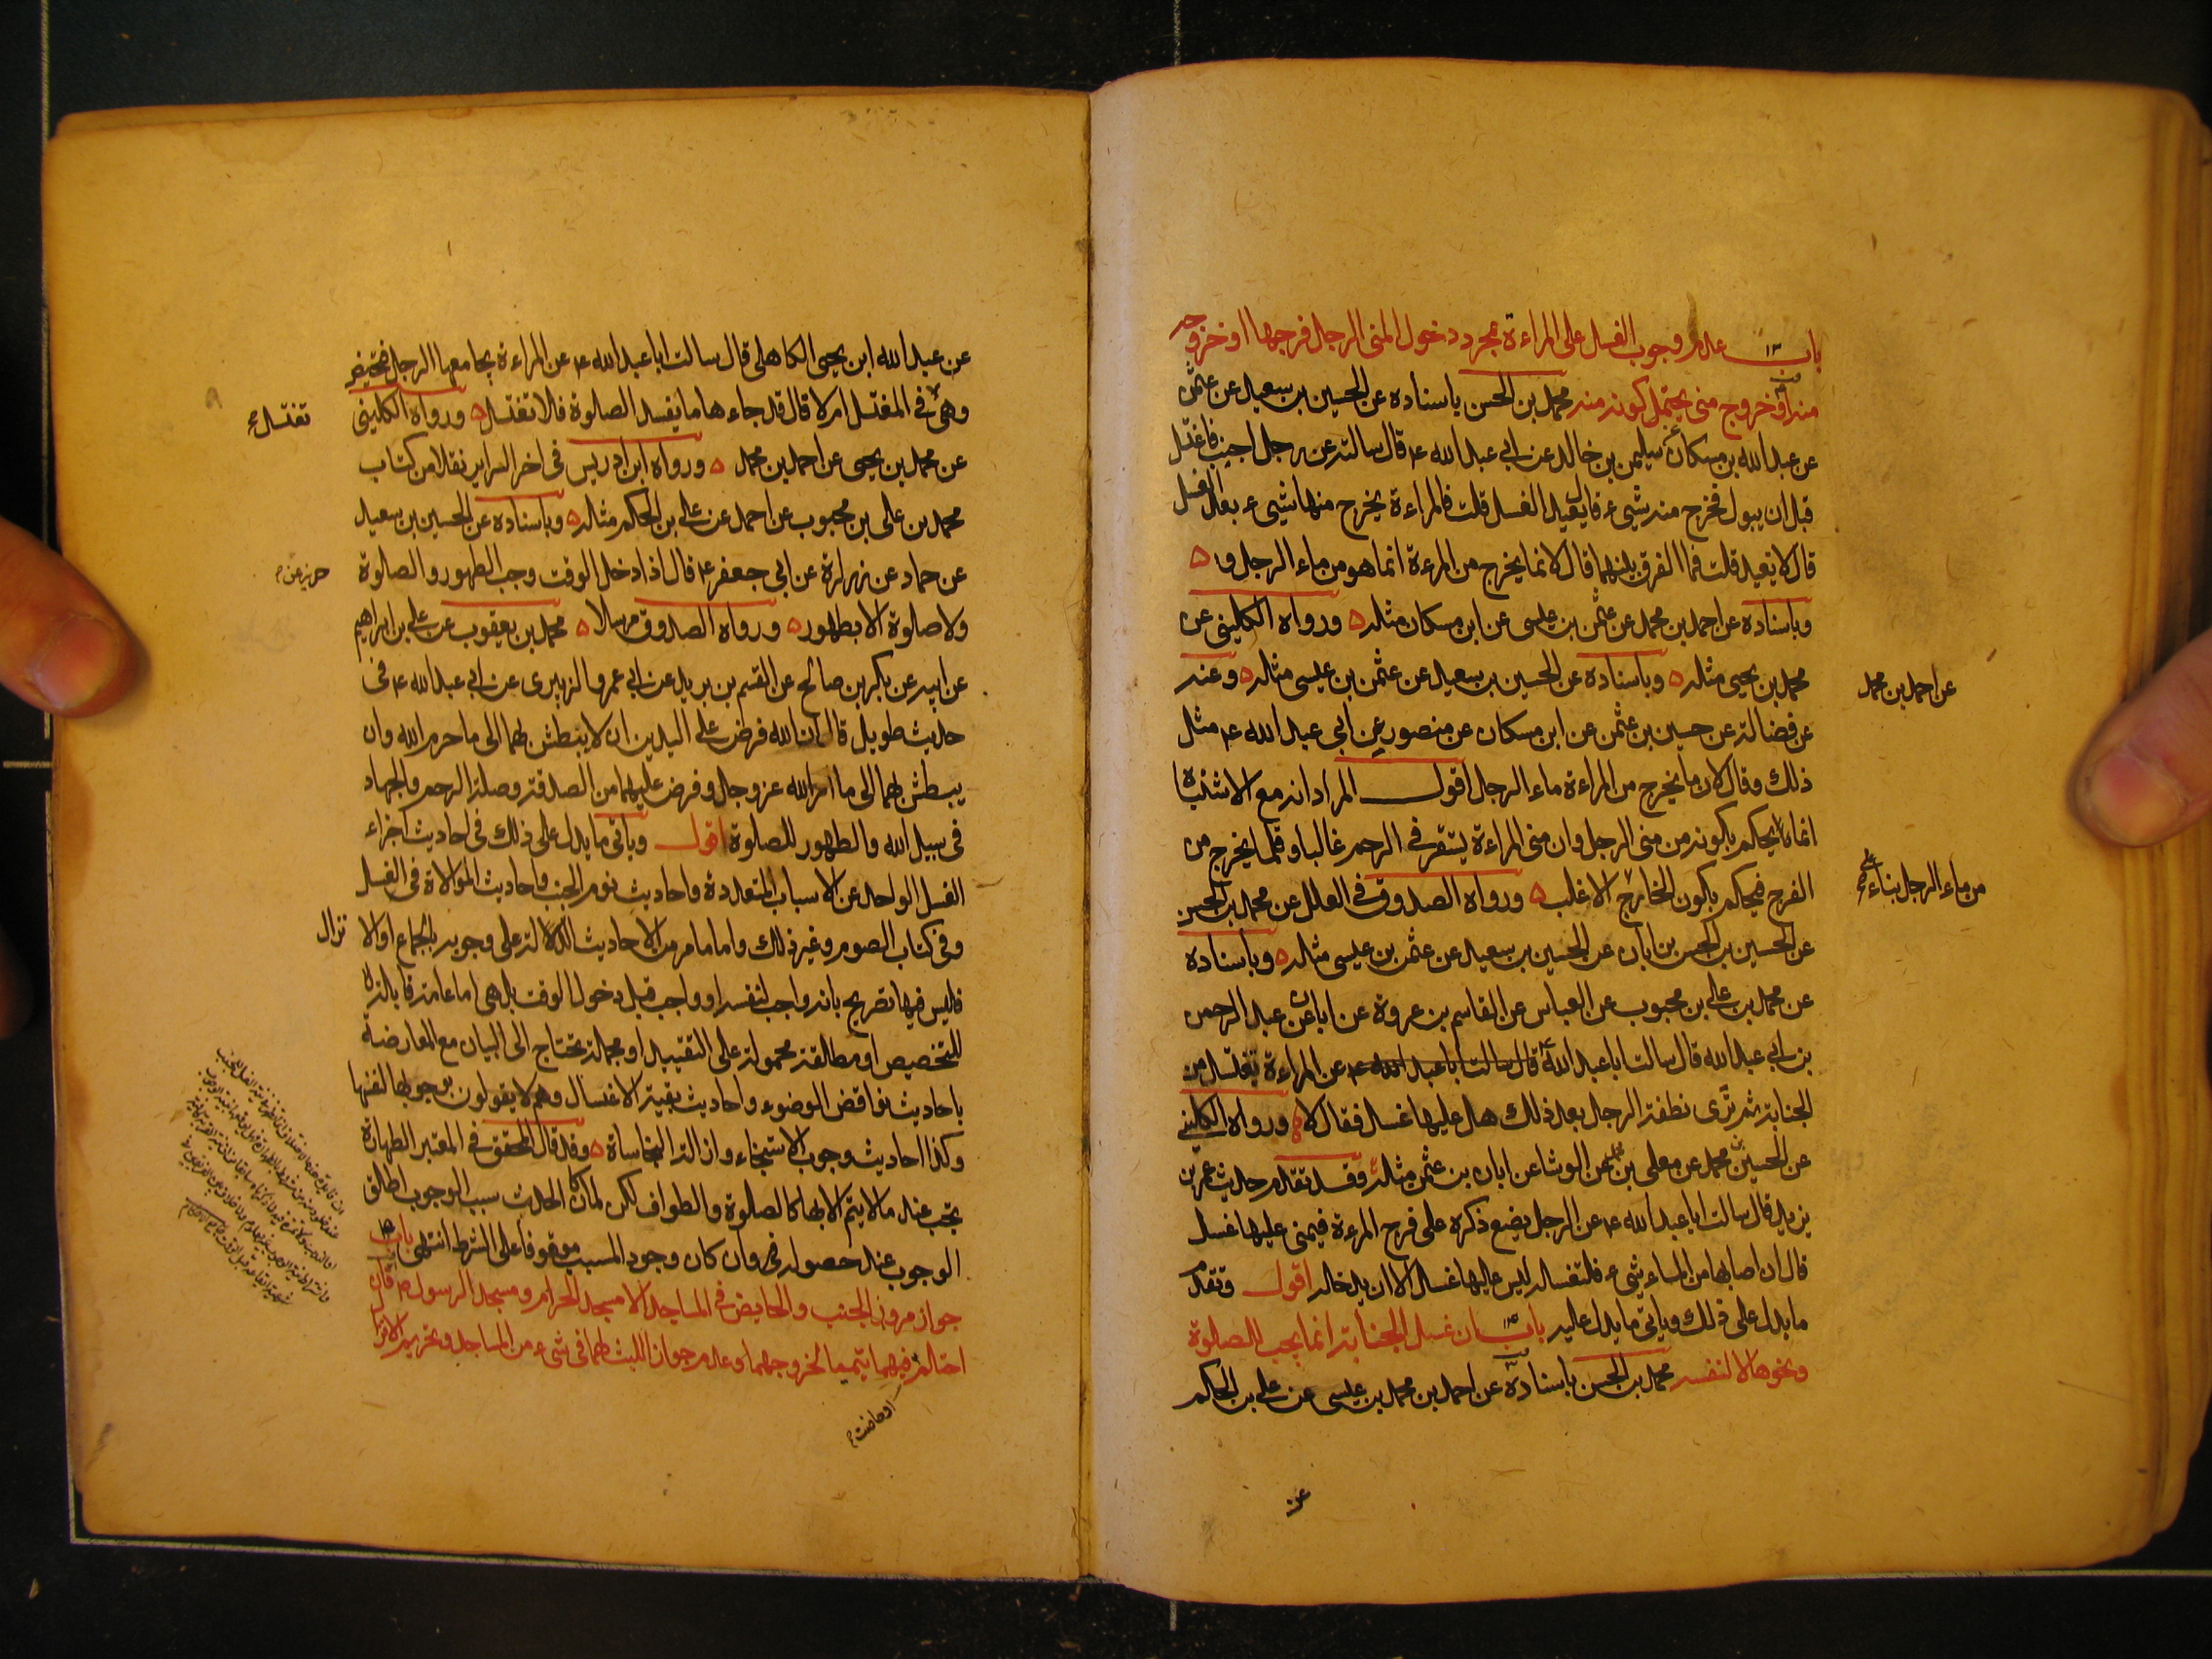 باب ١٣ عدم وجوب الغسل على المراءة بمجرد دخول المنى الرجل فرجها او خروجه
منه او خروج منى يحتمل كونه منه محمد بن الحسن باسناده عن الحسين بن سعيد عن عثمن
عن عبد الله بن مسكان عن سليمن بن خالد عن ابي عبد الله ع قال سالته عن رجل اجنب فاغتسل
قبل ان يبول فخرج منه شيء قال يعيد الغسل قلت فالمراءة يخرج منها شيء بعد الغسل
قال لا تعيد قلت فما الفرق بينهما قال لان ما يخرج من المرءة انما هو من ماء الرجل ٥
وباسناده عن احمد بن محمد عن عثمن بن عيسى عن ابن مسكان مثله ٥ ورواه الكليني عن
محمد بن يحيى مثله ٥ وباسناده عن الحسين بن سعيد عن عثمن بن عيسى مثله ٥ وعنه
عن احمد بن محمد
عن فضالة عن حسين بن عثمن عن ابن مسكان عن منصور عن ابي عبد الله ع مثل
ذلك وقال لان ما يخرج من المراءة ماء الرجل اقول المراد انه مع الاشتباه
انما يحكم بكونه من منى الرجل وان منى المراءة يستقر في الرحم غالبا وقلما يخرج من
الفرج فيحكم بكون الخارج الاغلب ٥ ورواه الصدوق في العلل عن محمد بن الحسن
من ماء الرجل بناء على
عن الحسين بن الحسن بن ابان عن الحسين بن سعيد عن عثمن بن عيسى مثله ٥ وباسناده
عن محمد بن علي بن محبوب عن العباس عن القاسم بن عروة عن ابان عن عبد الرحمن
بن ابي عبد الله قال سالت ابا عبد الله ع قال سالت ابا عبد الله ع عن المراءة تغتسل من
الجنابة ثم ترى نطفة الرجل بعد ذلك هل عليها غسل فقال لا ٥ ورواه الكليني
عن الحسين بن محمد عن معلى بن محمد عن الوشا عن ابان بن عثمن مثله وقد تقدم حديث عمر بن
يزيد قال سالت ابا عبد الله ع عن الرجل يضع ذكره على فرج المرءة فيمنى عليها غسل
قال ان اصابها من الماء شيء فلتغسله ليس عليها غسل الا ان يدخله اقول وتقدم
ما يدل على ذلك وياتي ما يدل عليه باب ١٤ ان غسل الجنابة انما يجب للصلوة
ونحوها لا لنفسه محمد بن الحسن باسناده عن احمد بن محمد بن عيسى عن علي بن الحكم
عن
عن عبد الله ابن يحيى الكاهلي قال سالت ابا عبد الله ع عن المراءة يجامعها الرجل فتحيض
وهي في المغتسل ام لا قال قد جاءها ما يفسد الصلوة فلا تغتسل ٥ ورواه الكليني
تغتسل
عن محمد بن يحيى عن احمد بن محمد ٥ ورواه ابن ادريس في اخر السراير نقلا من كتاب
محمد بن علي بن محبوب عن احمد عن علي بن الحكم مثله ٥ وباسناده عن الحسين بن سعيد
عن حماد عن زرارة عن ابي جعفر ع قال اذا دخل الوقت وجب الطهور والصلوة
حريز عن
ولا صلوة الا بطهور ٥ ورواه الصدوق مرسلا ٥ محمد بن يعقوب عن علي بن ابراهيم
عن ابيه عن بكر بن صالح عن القسم بن بريد عن ابي عمرو الزبيرى عن ابي عبد الله ع في
حديث طويل قال ان الله فرض على اليدين ان لا يبطش بهما الى ما حرم الله وان
يبطش بهما الى ما امر الله عز وجل وفرض عليهما من الصدقة وصلة الرحم والجهاد
في سبيل الله والطهور للصلوة اقول وياتي ما يدل على ذلك في احاديث اجزاء
الغسل الواحد عن الاسباب المتعددة واحاديث نوم الجنب واحاديث الموالاة في الغسل
وفي كتاب الصوم وغير ذلك واما ما مر من الاحاديث الدالة على وجوبه بالجماع او الا
نزال
فليس فيها تصريح بانه واجب لنفسه او واجب قبل دخول الوقت بل هي اما عامة قابلة
للتخصيص او مطلقة محمولة على التقييد او مجملة تحتاج الى البيان مع المعارضة
باحاديث نواقض الوضوء واحاديث بقية الاغسال وهم لا يقولون بوجوبها لنفسها
وكذا احاديث وجوب الاستنجاء وازالة النجاسة ٥ وقد قال المحقق في المعتبر الطهارة
تجب عند ما لا يتم الا بها كالصلوة والطواف لكن لما كان الحدث سبب الوجوب اطلق
الوجوب عند حصوله وان كان وجود المسبب موقوفا على الشرط انتهى باب ١٥
جواز مرور الجنب والحايض في المساجد الا مسجد الحرام ومسجد الرسول ص فان
احتلم فيهما تيمم لخروجهما وعدم جواز اللبث لهما في شيء من المساجد وتحريم الانزال
او حاضت